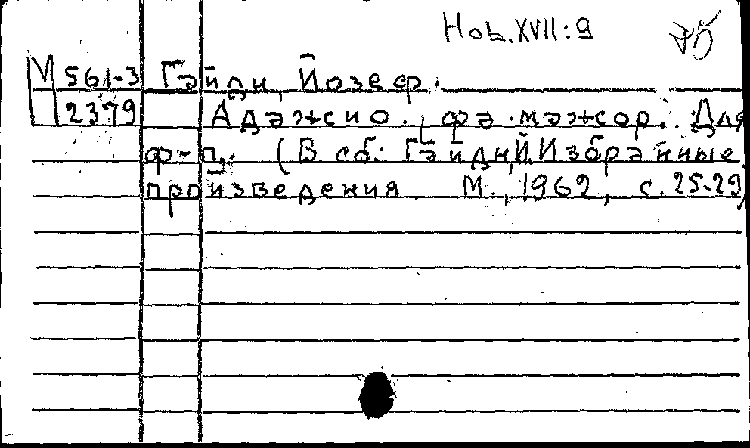 Ноb.XVII:9
М 561-3 Гайдн, Йозеф.
2379 Адажио, фа мажор. Для
ф-п. (В сб: Гайдн, Й. Избранные
произведения М., 1962, с. 25-29)